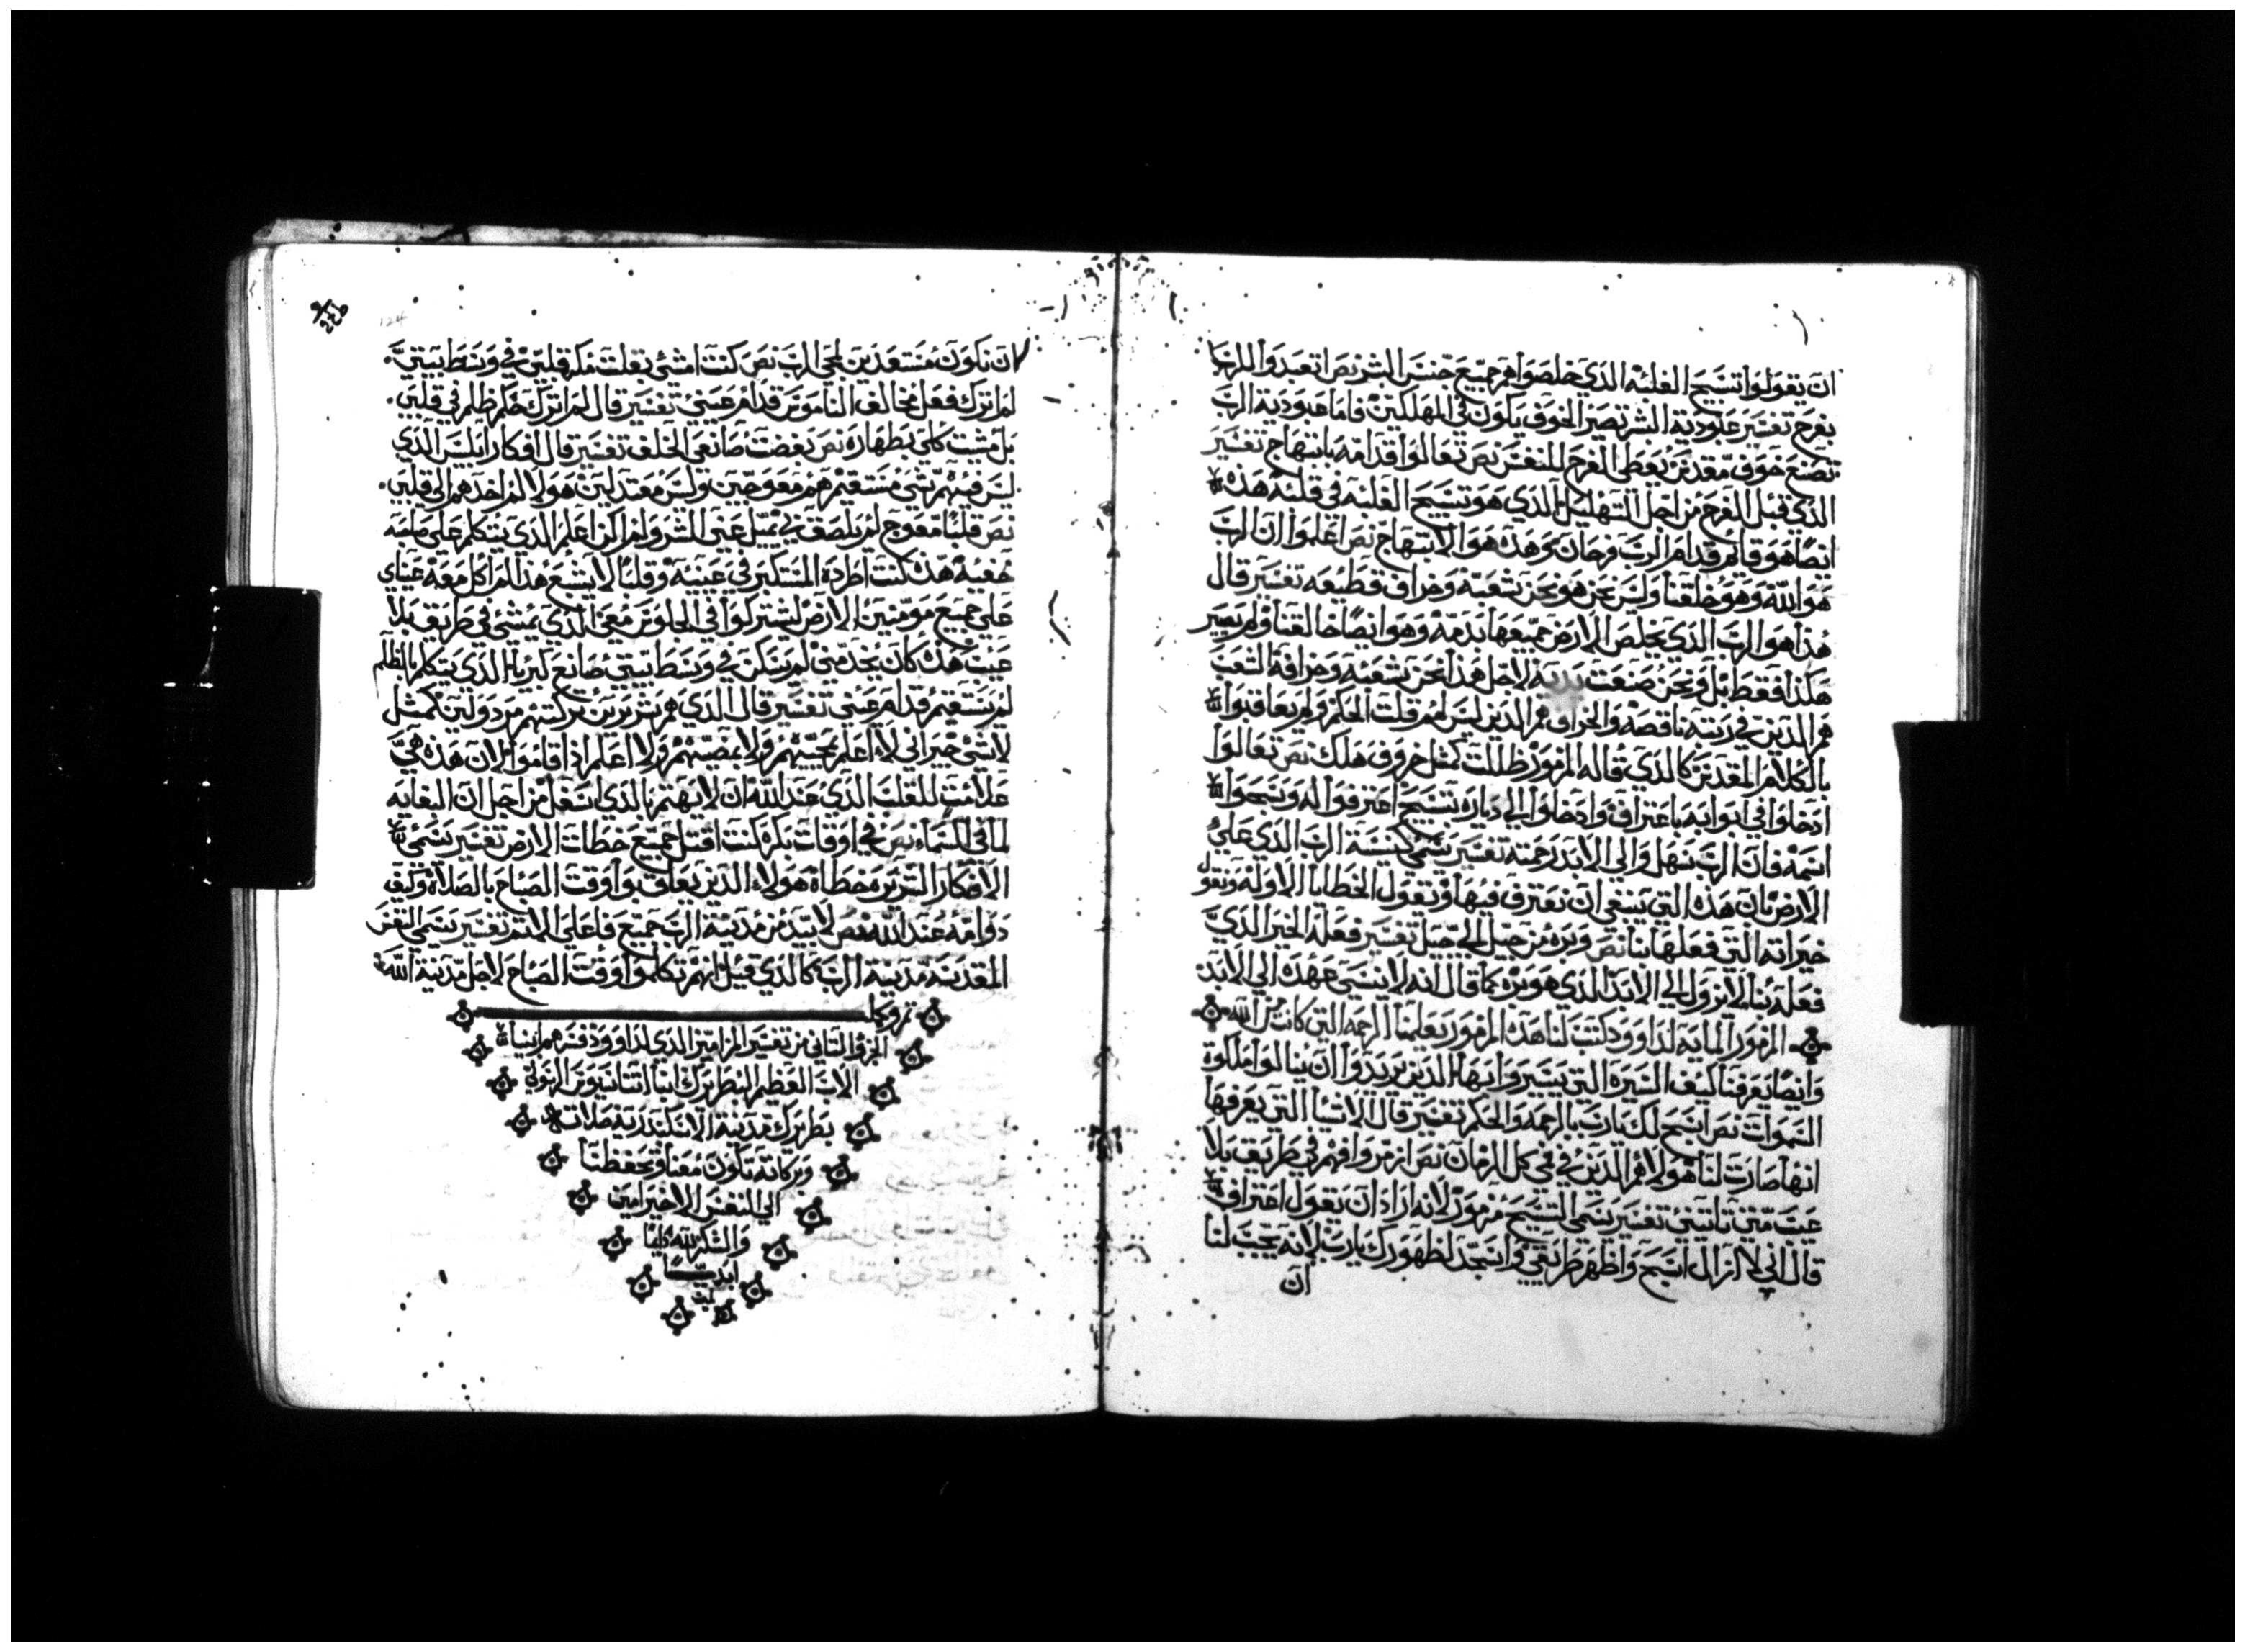 ان يقولوا تسبيح الغلبه الذي خلصوا هم جميع جنس البشر نص اتعبدوا للرب
بفرح تفسير عبودية البشر تصير الخوف يكون في المهلكين فاما عبودية الرب
تصنع خوف مقدس يعطي الفرح للنفس نص تعالوا قدامه بابتهاج تفسير
الذي قبل الفرح من اجل التهليل الذي هو تسبيح الغلبه في قلبه هذه
ايضا هو قايم قدام الرب فرحان وهذه هو الابتهاج نص اعلموا ان الرب
هو الله وهو خلقنا وليس نحن هو نحن شعبه وخراف قطيعه تفسير قال
هذا هو الرب الذي يخلص الارض جميعها بدمه وهو ايضا خالقنا ولم يصير
هكذا فقط بل ونحن صنعت يديه لاجل هذا نحن شعبه وخرافه الشعب
هم الذين في رتبة ناقصه والخراف هم الذين ليس لهم قلت الحكم ولم يعاقبوا
بالكلام المقدس كالذي قاله المزمور ظللت كمثل خروف هلك نص تعالوا
ادخلوا في ابوابه باعتراف وادخلوا الي دياره تسبيح اعترفوا له وسبحوا
اسمه فان الرب سهل والي الابد رحمته تفسير يسمي كنيسة الرب الذي علي
الارض بان هذه التي ينبغي ان نعترف فيها ونقول الخطايا الاوله ونقول
خيراته التي فعلها بنا نص وبره من جيل الي جيل تفسير فعله الخير الذي
فعله بنا لا يزول الي الابد الذي هو بره كما قال انه لا ينسي عهده الي الابد
المزمور المايه لداوود كتب لنا هذه المزمور يعلمنا الرحمه التي كانت من الله
وايضا يعرفنا كيف السيرة التي يسيروا بها الذين يريدوا ان ينالوا ملكوة
السموات نص اسبح لك يارب بالرحمه والحكم تفسير قال الاشيا التي يعرفها
انها صارت لنا هولا هم الذين في فمي كل الزمان نص ازمر وافهم في طريق بلا
عيب متي تاتيني تفسير يسمي التسبيح مزمور لانه اراد ان يقول اعتراف
قال اني لا ازال اسبح واظهر طريقي واستجد لظهورك يارب لانه يجب لنا
ان
ان نكون مستعدين لمجي الرب نص كنت امشي بقلت مكر قلبي في وسط بيتي
لم اترك فعل مخالف الناموس قدام عيني تفسير قال لم اترك حكم ظلم في قلبي
بل مشيت كلي بطهاره نص بغضت صانعي الخلف تفسير قال افكار ابليس الذي
ليس فيهم شي مستقيم هم معوجين وليس معتدلين هولا لم اخدهم الي قلبي
نص قلبا معوج لم يلصق بي يميل عني الشر ولم اكن اعلم الذي يتكلم علي صاحبه
خفية هذه كنت اطرده المتكبر في عينيه وقلبا لا يشبع هذا لم اكل معه عيناي
علي جميع مومنين الارض ليشتركوا في الجلوس معي الذي يمشي في طريق بلا
عيب هذه كان يخدمني لم يسكن في وسط بيتي صانع كبريا الذي يتكلم بالظلم
لم يستقيم قدام عيني تفسير قال الذي هم شريرين تركتهم مردولين كمثل
لا شي خير اني لا اعلم بمجيهم ولا بمضيهم ولا اعلم اذا قاموا لان هذه هي
علامت للقلب الذي عند الله ان لا يهتم بالذي اسفل من اجل ان البغايه
لما في السماء نص في اوقات بكره كنت اقتل جميع خطات الارض تفسير يسمي
الافكار الشريره خطاة هولاء الذين يعاقبوا وقت الصباح بالصلاة وكيف
دوامه عند الله نص لابيد من مدينة الرب جميع فاعلي الاثم تفسير يسمي النفس
المقدسه مدينة الرب كالذي قيل انهم تكلموا وقت الصباح لاجل مدينة الله
تم وكمل
الجزؤ الثاني من تفسير المزامير الذي لداوود فسرهم ابينا
الاب العظيم البطريرك انبا اتناسيوس الرسولي
بطريرك مدينة الاسكندرية صلاته
وبركاته تكون معنا وتحفظنا
الي النفس الاخير امين
والشكر لله دايما
ابديا